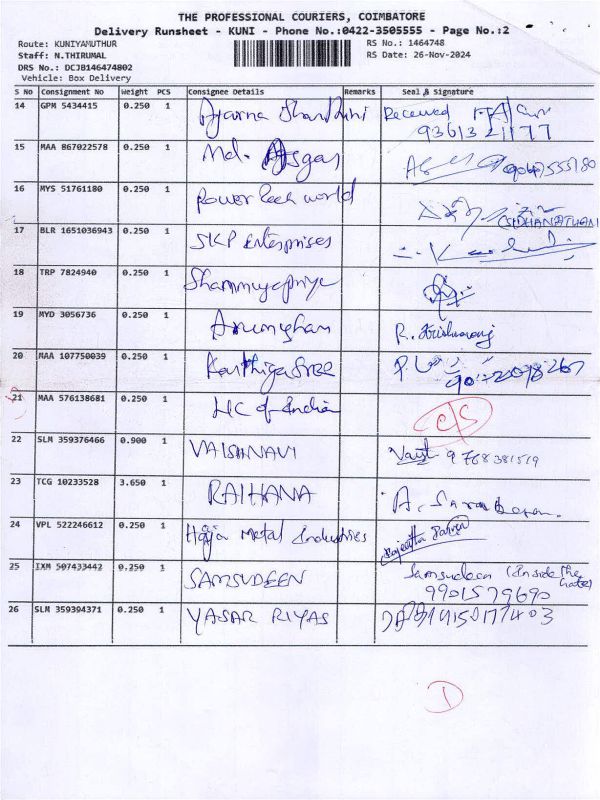 THE PROFESSIONAL COURIERS, COIMBATORE
Delivery Runsheet - KUNI - Phone No.:0422-3505555 - Page No.:2
Route: KUNIYAMUTHUR
RS No.: 1464748
Staff: N.THIRUMAL
RS Date: 26-Nov-2024
DRS No.: DCJB146474802
Vehicle: Box Delivery
S No Consignment No Weight PCS Consignee Details Remarks Seal & Signature
14 GPM 5434415 0.250 1 Received
9361321177
15 MAA 867022578 0.250 1 Md. Asgar
16 MYS 51761180 0.250 1 Power Geek world
17 BLR 1651036943 0.250 1 SKP Enterprises
18 TRP 7824940 0.250 1 Shanmugapriya
19 MYD 3056736 0.250 1 Arumugham R. Krishnaraj
20 MAA 107750039 0.250 1 Karthigasree
21 MAA 576138681 0.250 1 LIC of India C/S
22 SLM 359376466 0.900 1 VAISHNAVI 9768381519
23 TCG 10233528 3.650 1 RAIHANA
24 VPL 522246612 0.250 1 Metal Industries
25 IXM 507433442 0.250 1 SAMSUDEEN Samsudeen (Inside The Gate)
9901579690
26 SLM 359394371 0.250 1 YASAR RIYAS